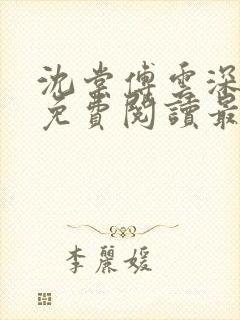 沈棠傅雲深
免費閱讀最
李麗媛